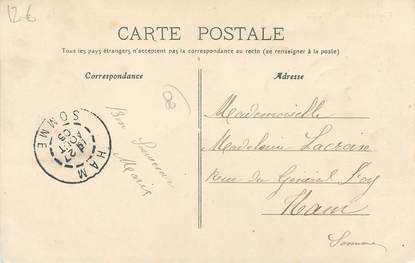 12 €
CARTE POSTALE
Tous les pays étrangers n'acceptent pas la correspondance au recto (se renseigner à la poste)
Correspondance
Adresse
80
Bon Souvenir
Marie
HAM
SOMME
27
AOUT
Mademoiselle
Madeleine Lacroix
Rue du Général Foy
Ham
Somme